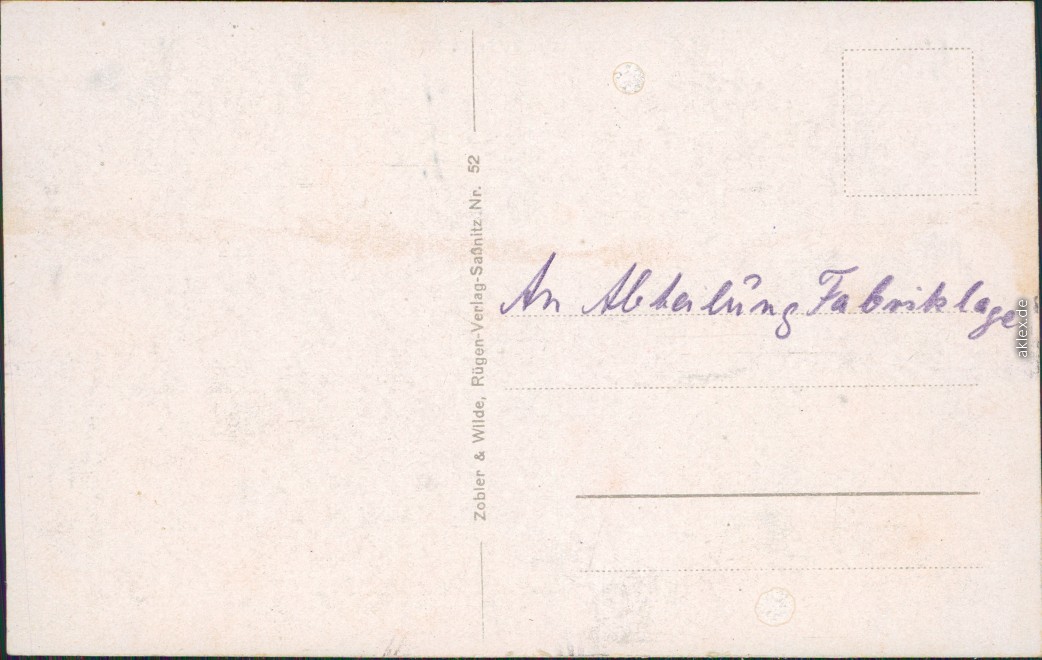 Zobler & Wilde, Rügen-Verlag-Saßnitz Nr. 52
An Abteilung Fabriklager
aklex.de